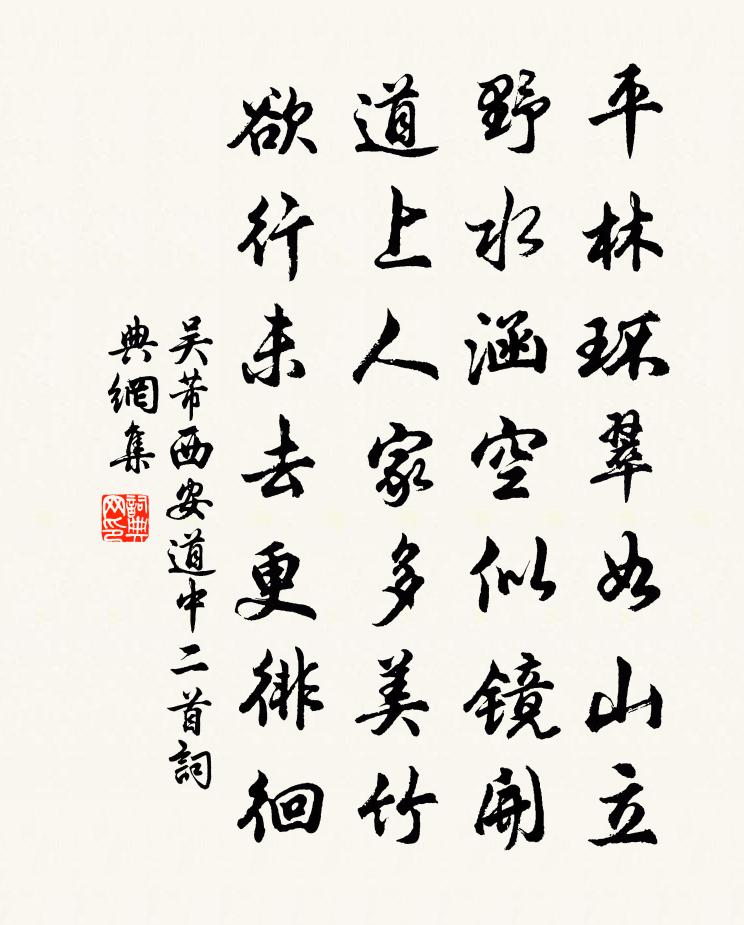 平林环翠如山立
野水涵空似镜開
道上人家多美竹
欲行未去更徘徊
吴芾西安道中二首詞
典網集
詞典網印